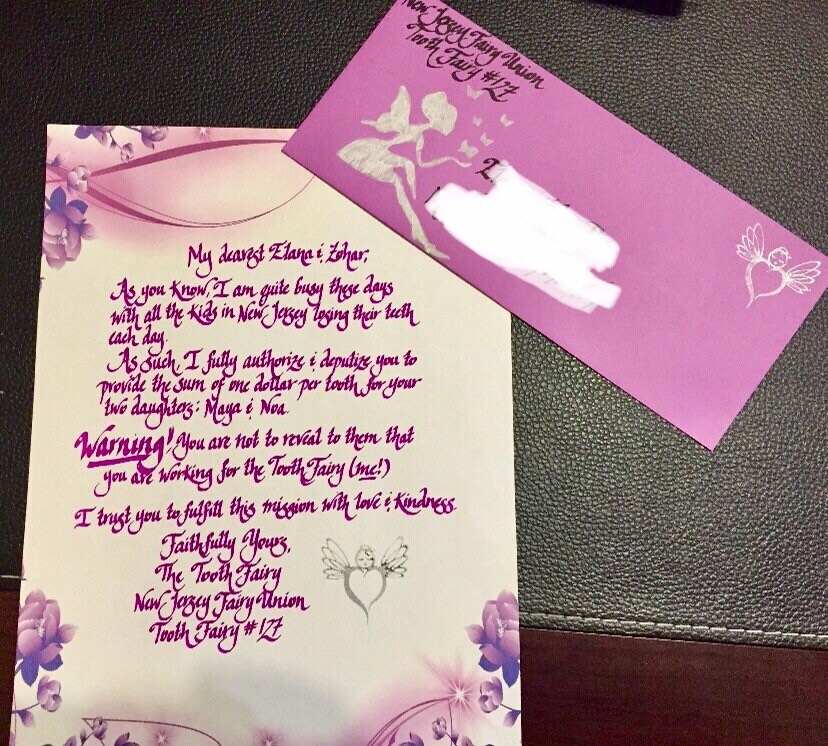 New Jersey Fairy Union
Tooth Fairy #127
My dearest Elana & Zohar,
As you know, I am quite busy these days
with all the kids in New Jersey losing their teeth
each day.
As such, I fully authorize & deputize you to
provide the sum of one dollar per tooth for your
two daughters: Maya & Noa.
Warning! You are not to reveal to them that
you are working for the Tooth Fairy (me!)
I trust you to fulfill this mission with love & kindness.
Faithfully Yours,
The Tooth Fairy
New Jersey Fairy Union
Tooth Fairy #127